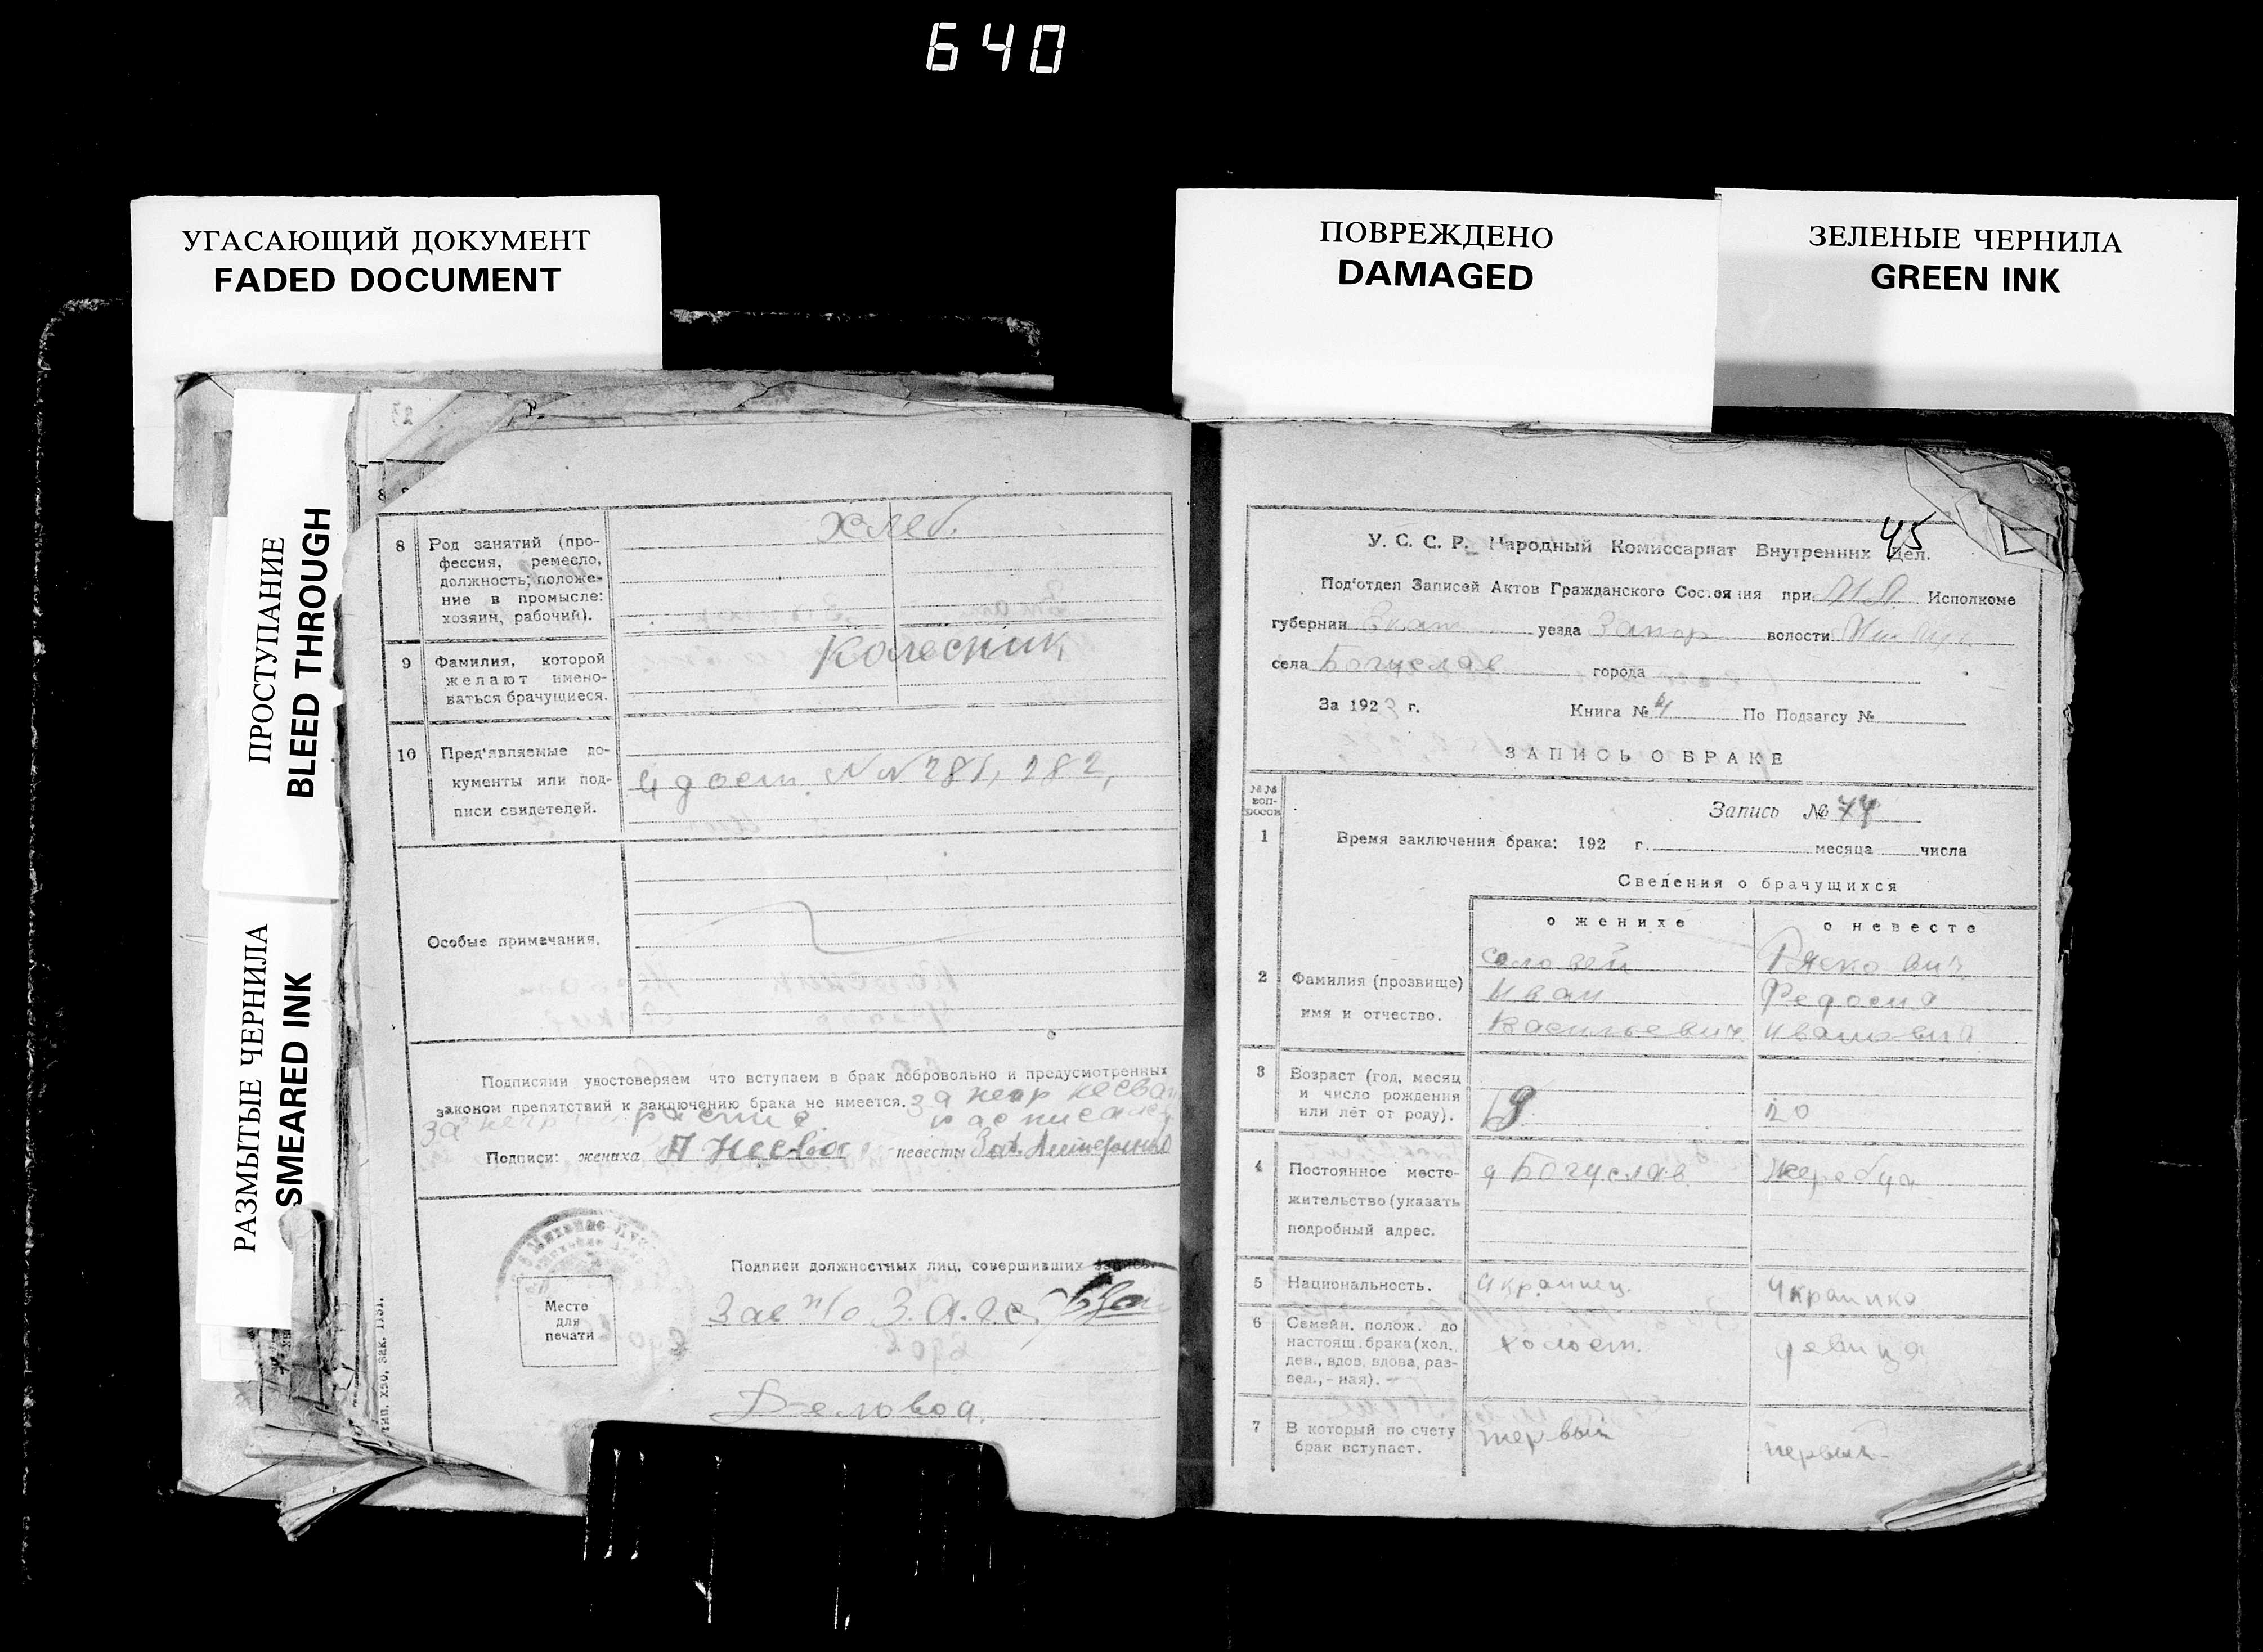 640
УГАСАЮЩИЙ ДОКУМЕНТ
FADED DOCUMENT
ПОВРЕЖДЕНО
DAMAGED
ЗЕЛЕНЫЕ ЧЕРНИЛА
GREEN INK
ПРОСТУПАНИЕ
BLEED THROUGH
РАЗМЫТЫЕ ЧЕРНИЛА
SMEARED INK
8 Род занятий (про-
фессия, ремесло,
должность; положе-
ние в промысле:
хозяин, рабочий).
Хлеб.
9 Фамилия, которой
желают имено-
ваться брачущиеся.
Колесник,
10 Пред'являемые до-
кументы или под-
писи свидетелей.
N N 281, 282,
Особые примечания.
Подписями удостоверяем что вступаем в брак добровольно и предусмотренных
законом препятствий к заключению брака не имеется. за негр
за негр
Подписи: жениха невесты
Место
для
печати
Подписи должностных лиц, совершивших запись.
З.А.Г.С.
Деловод.
45
У. С. С. Р. Народный Комиссариат Внутренних Дел.
Под'отдел Записей Актов Гражданского Состояния при Исполкоме
губернии Екат уезда Запор волости
села Богуслав города
За 192 г. Книга № 4 По Подзагсу №
ЗАПИСЬ О БРАКЕ
№№
воп-
росов
Запись № 44
1 Время заключения брака: 192 г. месяца числа
Сведения о брачущихся
о женихе о невесте
2 Фамилия (прозвище)
имя и отчество.
Соловей
Иван Федосия
Васильевич Ивановна
3 Возраст (год, месяц
и число рождения
или лет от роду).
19 20
4 Постоянное место-
жительство (указать
подробный адрес.
Богуслав Жеребца
5 Национальность. Украинец. Украинка
6 Семейн. полож. до
настоящ. брака (хол.,
дев., вдов, вдова, раз-
вед., - ная). -
холост. девица
7 В который по счету
брак вступает.
первый первый